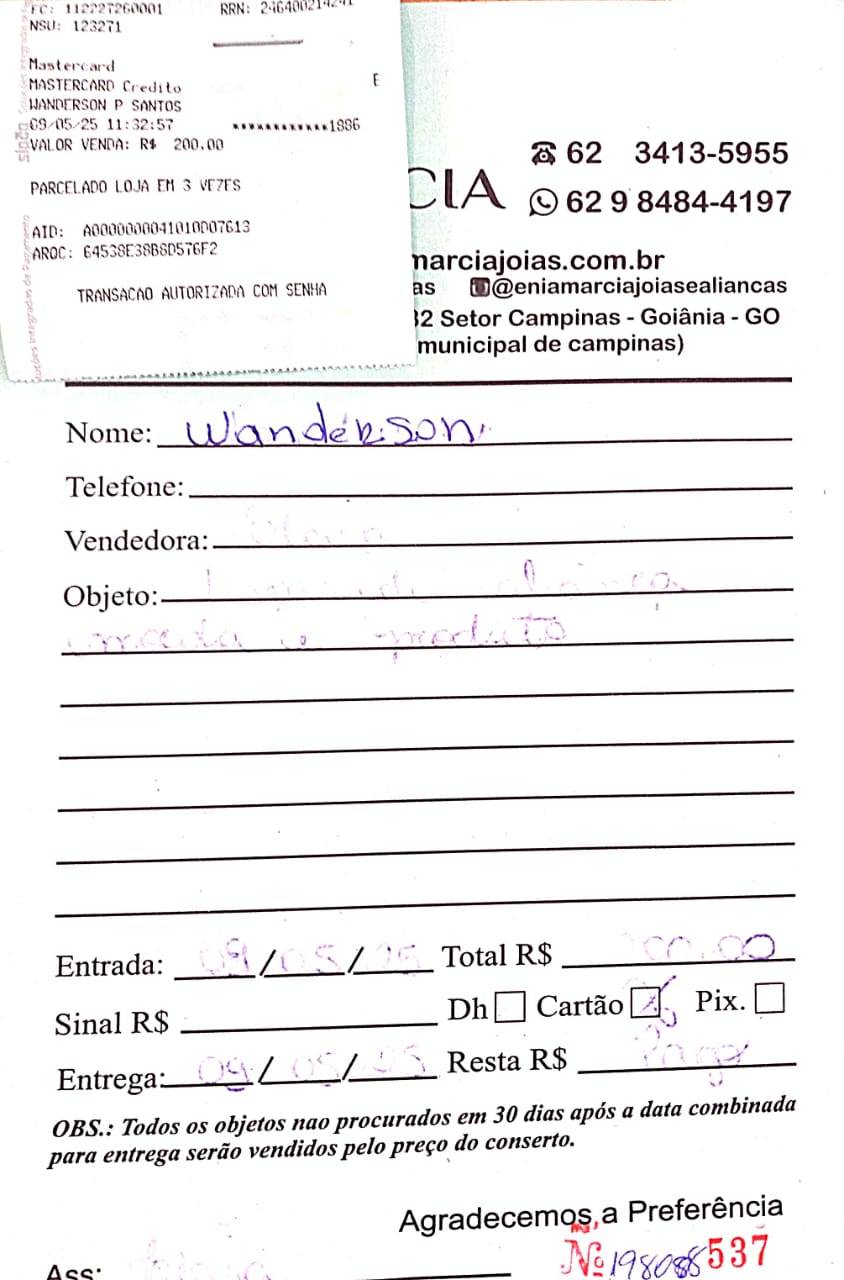 EC: 112227260001 RRN: 246400214241
NSU: 123271
Mastercard
MASTERCARD Credito E
WANDERSON P SANTOS
09/05/25 11:32:57 ************1886
VALOR VENDA: R$ 200.00
PARCELADO LOJA EM 3 VEZES
AID: A0000000041010D07613
ARQC: 64538E38B8D576F2
TRANSACAO AUTORIZADA COM SENHA
CIA
62 3413-5955
62 9 8484-4197
marciajoias.com.br
as @eniamarciajoiasealiancas
32 Setor Campinas - Goiânia - GO
municipal de campinas)
Nome: Wanderson
Telefone:
Vendedora:
Objeto: aliança
produto
Entrada: 09/05/25 Total R$ 200,00
Sinal R$ Dh Cartão Pix.
Entrega: 09/05/25 Resta R$ Pago
OBS.: Todos os objetos nao procurados em 30 dias após a data combinada
para entrega serão vendidos pelo preço do conserto.
Agradecemos a Preferência
Ass: Nº 198088 537